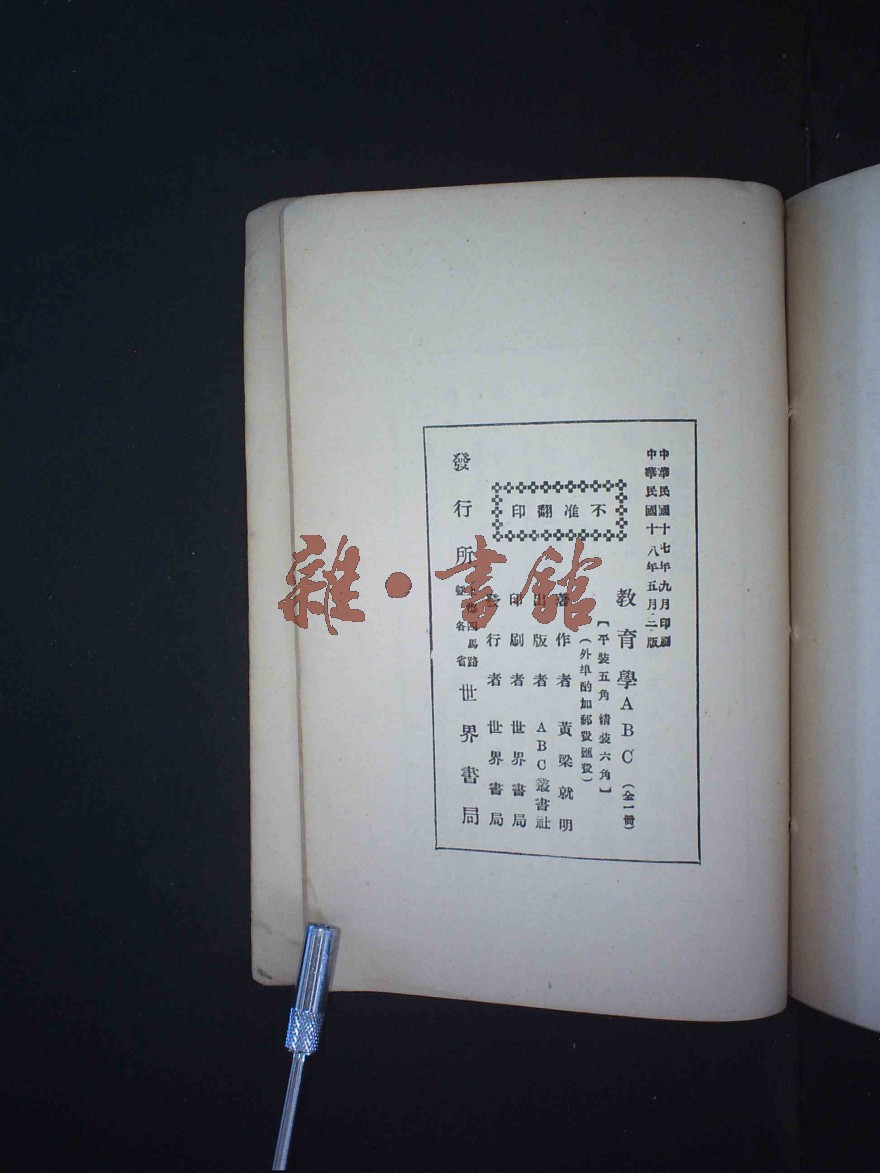 中華民國十七年九月印刷
中華民國十八年五月三版
教育學ABC（全一冊）
【平裝五角 精裝六角】
（外埠酌加郵費匯費）
不准翻印
著作者 黃梁就明
出版者 ABC叢書社
印刷者 世界書局
發行者 世界書局
發行所 上海四馬路 暨各省 世界書局
雜·書館